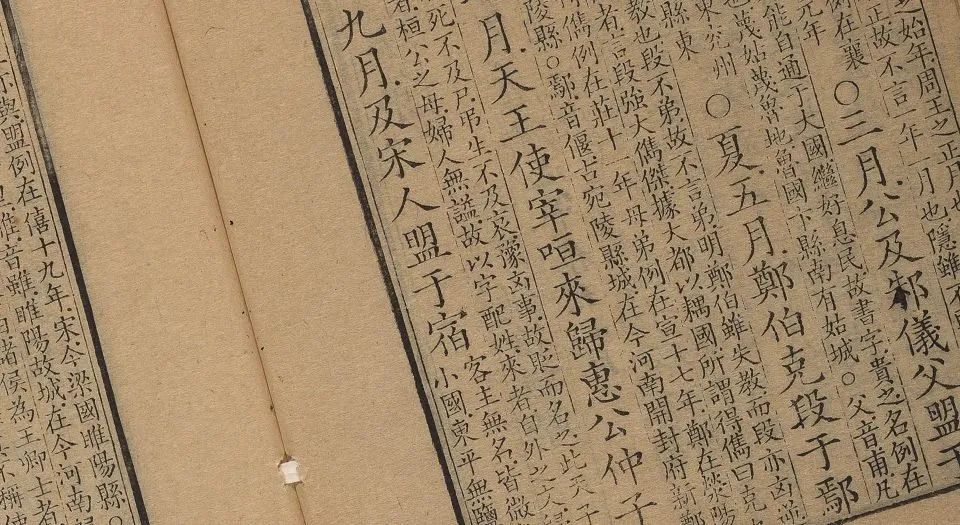 之始年周王之正月
正故不言一年一月也隱雖不
例在襄
元年
○三月公及邾儀父盟于
能自通于大國繼好息民故書字貴之名例在
也蔑姑蔑魯地魯國卞縣南有姑城○父音甫凡
東兗州
縣東
○夏五月鄭伯克段于鄢
教也段不弟故不言弟明鄭伯雖失教而段亦凶逆
者言段強大儁傑據大都以耦國所謂得儁曰克
儁例在莊十一年母弟例在宣十七年鄭在滎陽
陵縣○鄢音偃古宛陵縣城在今河南開封府新鄭
月天王使宰咺來歸惠公仲子
死不及尸弔生不及哀豫凶事故貶而名之此天子
者桓公之母婦人無謚故以字配姓來者自外之文
九月及宋人盟于宿
客主無名皆微
小國東平無鹽
亦與盟例在僖十九年宋今梁國睢陽縣○
睢音雖睢陽故城在今河南歸
侯為王卿士者
不稱使